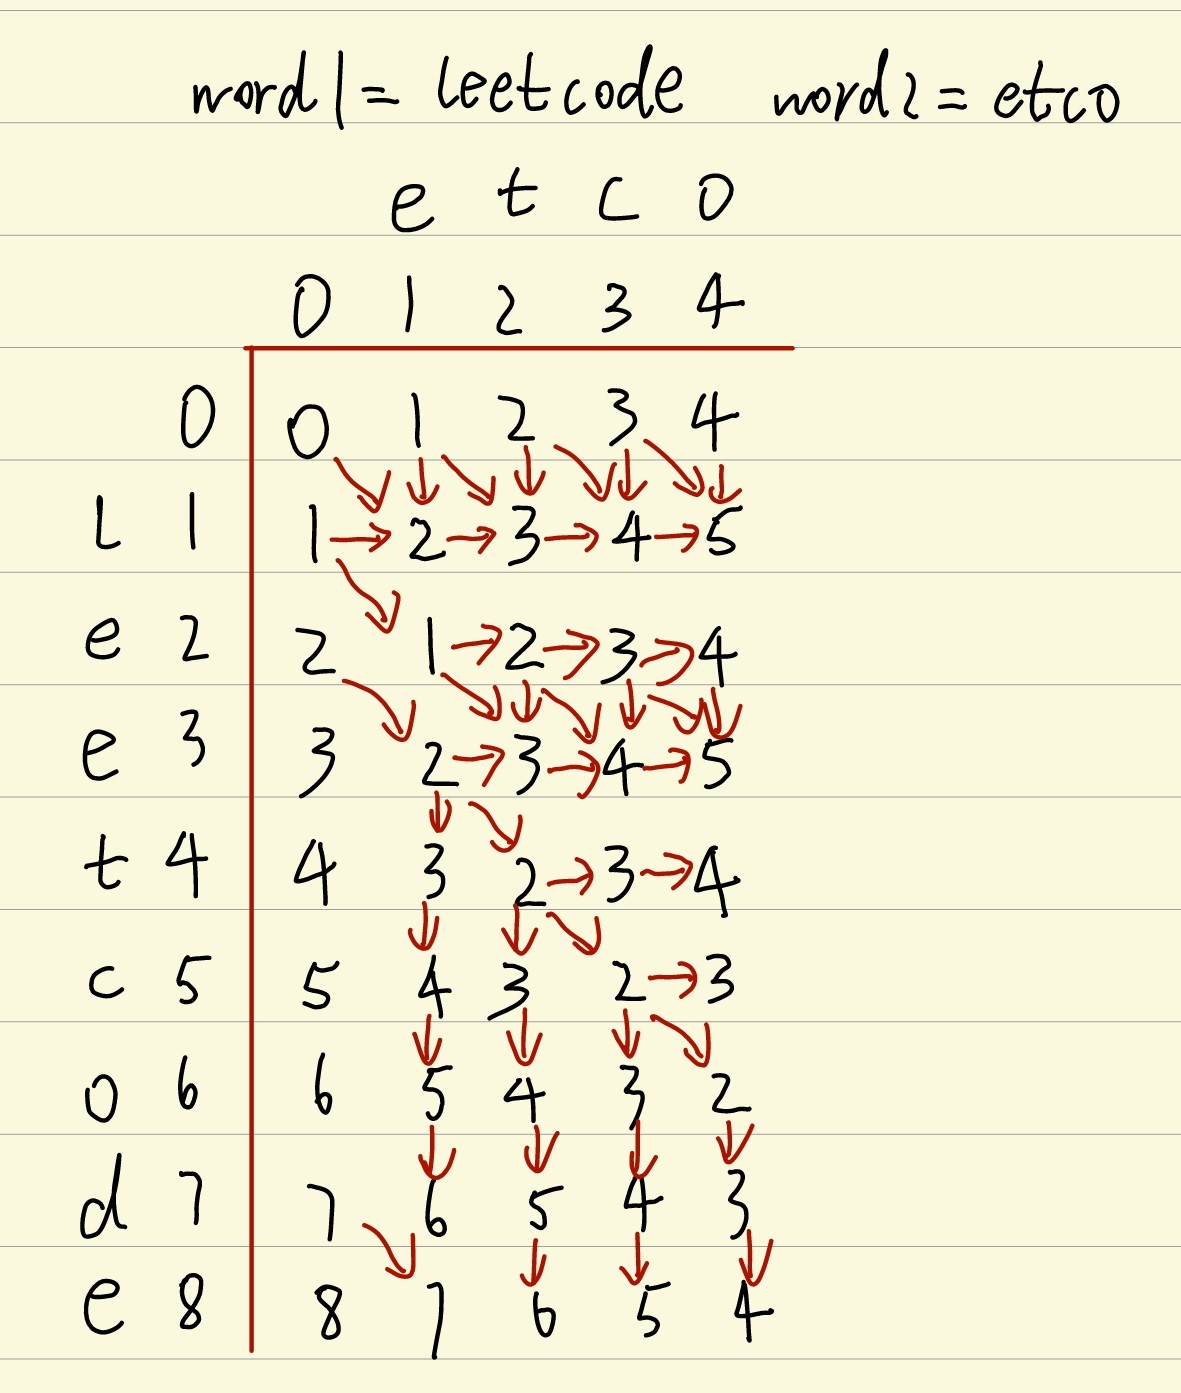 word1 = leetcode word2 = etco
e t c o
0 1 2 3 4
0 0 1 2 3 4
L 1 1 2 3 4 5
e 2 2 1 2 3 4
e 3 3 2 3 4 5
t 4 4 3 2 3 4
c 5 5 4 3 2 3
o 6 6 5 4 3 2
d 7 7 6 5 4 3
e 8 8 7 6 5 4